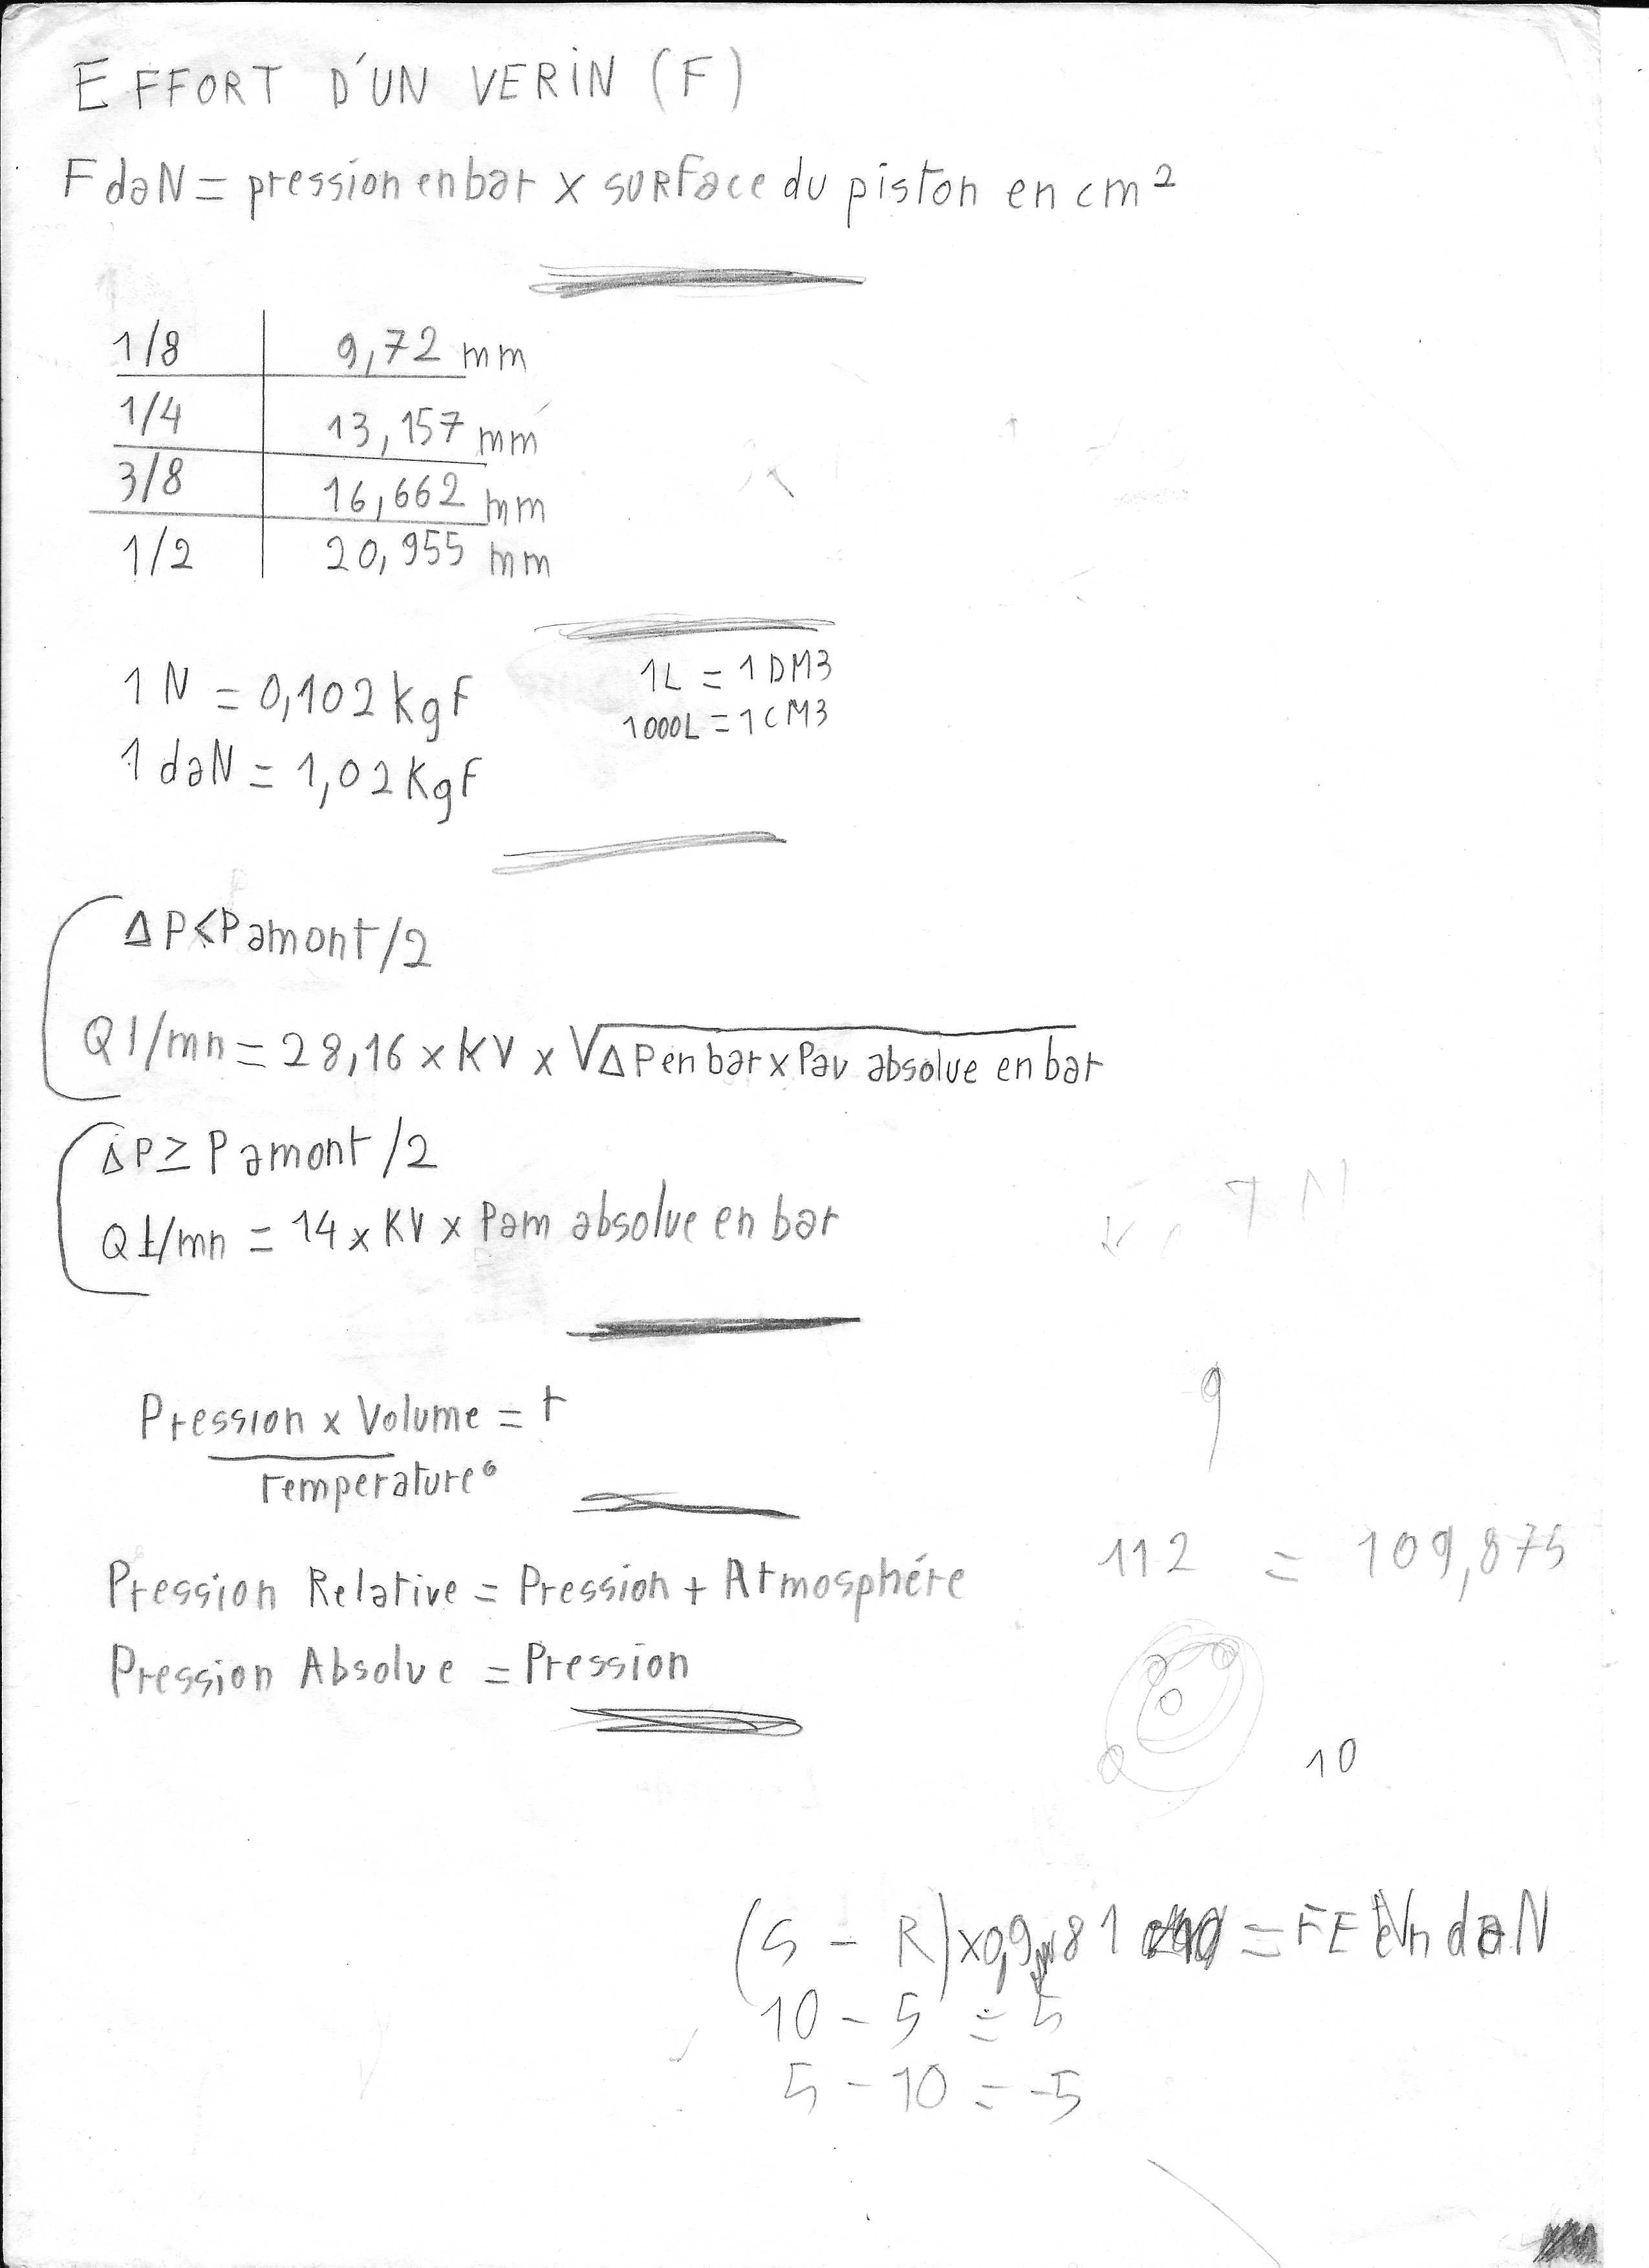 EFFORT D'UN VERIN (F)
F daN = pression en bar x surface du piston en cm²
1/8 9,72 mm
1/4 13,157 mm
3/8 16,662 mm
1/2 20,955 mm
1 N = 0,102 kgF
1 daN = 1,02 kgF
1L = 1 DM3
1000L = 1 CM3
Δ P < P amont /2
Q l/mn = 28,16 x KV x √Δ P en bar x Pav absolue en bar
Δ P ≥ P amont /2
Q l/mn = 14 x KV x Pam absolue en bar
Pression x Volume = t
Temperature°
9
Pression Relative = Pression + Atmosphére
Pression Absolue = Pression
112 = 109,875
10
(S - R) x 0,981 = FE En daN
10 - 5 = 5
5 - 10 = -5